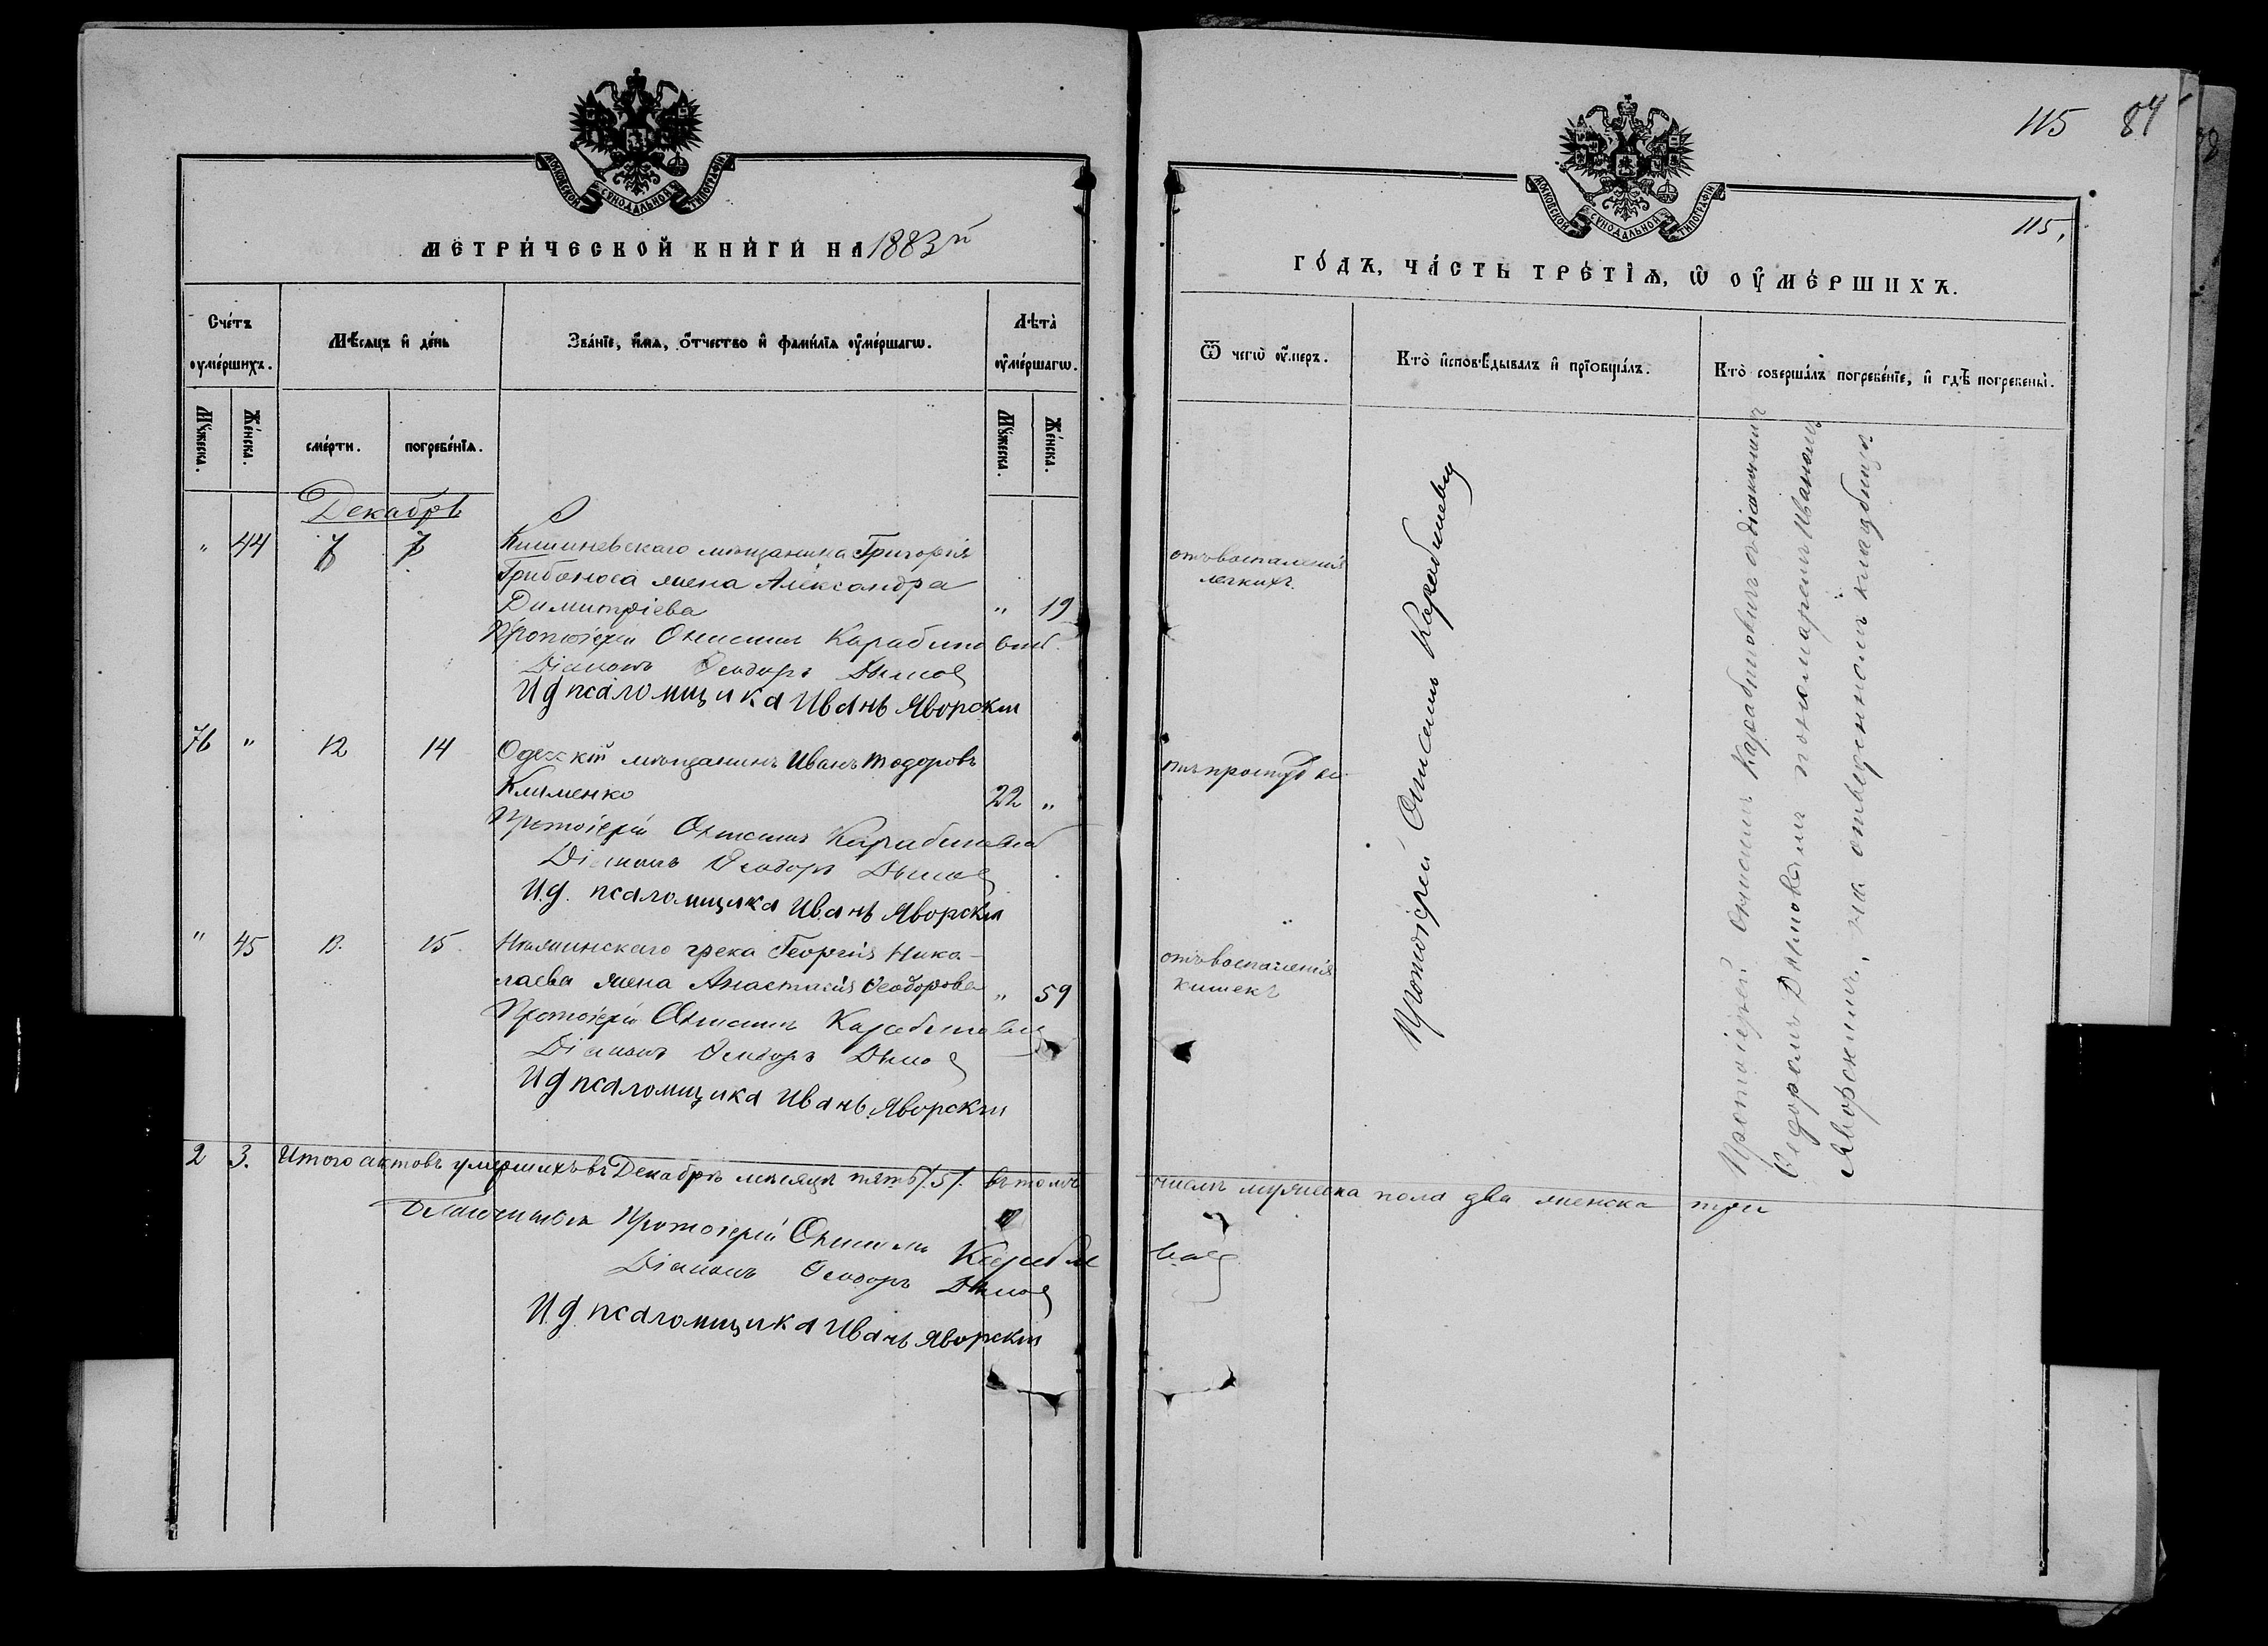 115 84
МОСКОВСКОЙ СѴНОДАЛЬНОЙ ТИПОГРАФІИ
МЕТРИ́ЧЕСКОЙ КНИ́ГИ НА 1883й
Сче́тъ оумéршихъ.
Мꙋ́жеска.
Же́нска.
Мѣ́сяцъ и҆ де́нь
сме́рти.
погребе́нїѧ.
Зва́нїе, и҆́мѧ, ѻ҆́тчество и҆ фами́лїѧ ᲂу҆ме́ршагѡ.
Лѣта̀ ᲂу҆ме́ршагѡ.
Мꙋ́жеска.
Же́нска.
Декабрь
" 44 7 7 Кишиневскаго мѣщанина Григорія
Грибоноса жена Александра
Димитріева " 19
Протоіерей Онисимъ Карабиновичъ
Діаконъ Ѳеодоръ Дымов
И д псаломщика Иванъ Яворскій
76 " 12 14 Одесскій мѣщанинъ Иванъ Тодоровъ
Клименко 22 "
Протоіерей Онисимъ Карабинович
Діаконъ Ѳеодоръ Дымов
И.д. псаломщика Иванъ Яворскій
" 45 13. 15 Нѣжинскаго грека Георгія Нико-
лаева жена Анастасія Ѳеодорова " 59
Протоіерей Онисимъ Карабинович
Діаконъ Ѳеодоръ Дымов
И д псаломщика Иванъ Яворскій
2 3. Итого актовъ умершихъ въ Декабрѣ мѣсяцѣ пять /.5/. въ томъ
Протоіерей Онисимъ Караби
Діаконъ Ѳеодоръ Дымов
И.д. псаломщика Иванъ Яворскій
МОСКОВСКОЙ СѴНОДАЛЬНОЙ ТИПОГРАФІИ
115.
ГО́ДЪ, ЧА́СТЬ ТРЕ́ТЇѦ, Ѡ҆ ОУ҆МЕ́РШИХЪ.
Ѿ чегѡ̀ ᲂу҆́меръ.
Кто̀ и҆сповѣ́дывалъ и҆ прїѡбща́лъ.
Кто̀ соверша́лъ погребе́нїе, и҆ гдѣ̀ погребены̀.
отъ воспаленія
легкихъ.
отъ простуды
отъ воспаленія
кишекъ
Протоіерей Онисимъ Карабинович
Протоіерей Онисимъ Карабиновичъ съ діакономъ
Ѳедоромъ Дымовымъ и пономаремъ Иваномъ
Яворскимъ, на отведенномъ кладбищѣ.
числѣ мужеска пола два женска три
нов